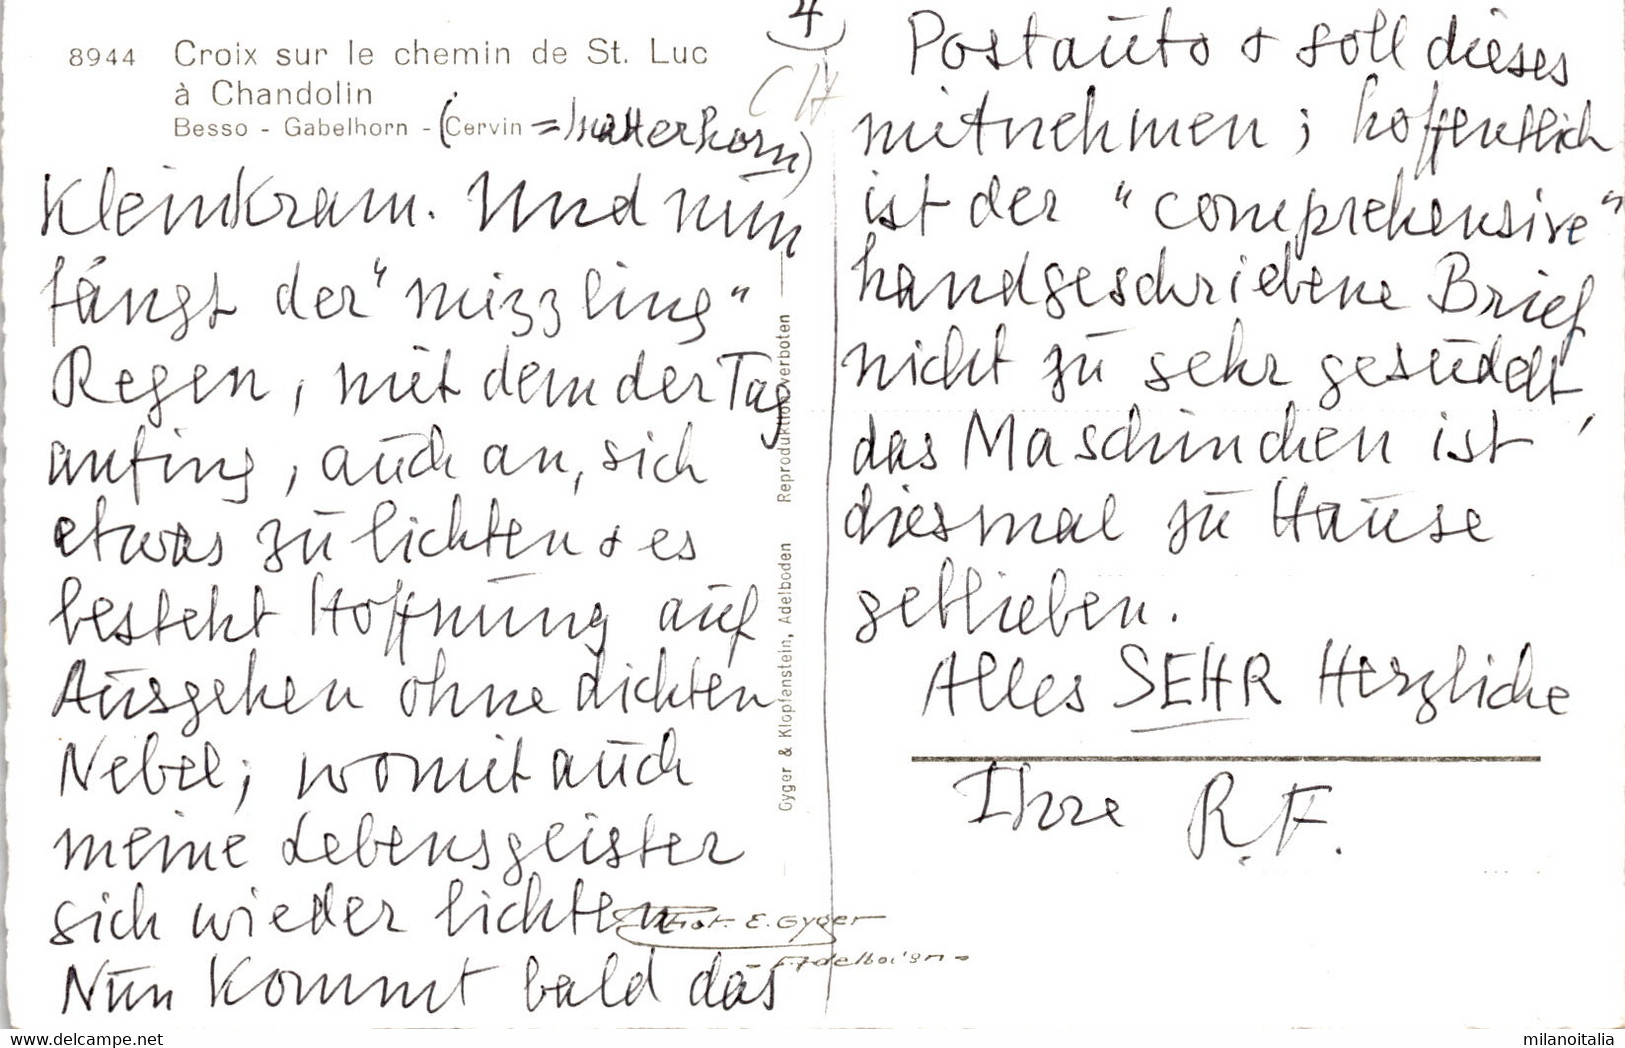 4
CH
8944 Croix sur le chemin de St. Luc
à Chandolin
Besso - Gabelhorn - (Cervin = Matterhorn)
Kleinkram. Und nun
fängt der "mizzling"
Regen, mit dem der Tag
anfing, auch an, sich
etwas zu lichten & es
besteht Hoffnung auf
Ausgehen ohne dichten
Nebel; womit auch
meine Lebensgeister
sich wieder lichten
Nun kommt bald das
Gyger & Klopfenstein, Adelboden Reproduktion verboten
Phot. E. Gyger
Adelboden
Postauto & soll dieses
mitnehmen; hoffentlich
ist der "comprehensive"
handgeschriebene Brief
nicht zu sehr gesudelt,
das Maschinchen ist
diesmal zu Hause
geblieben.
Alles SEHR Herzliche
Ihre R.F.
delcampe.net
milanoitalia